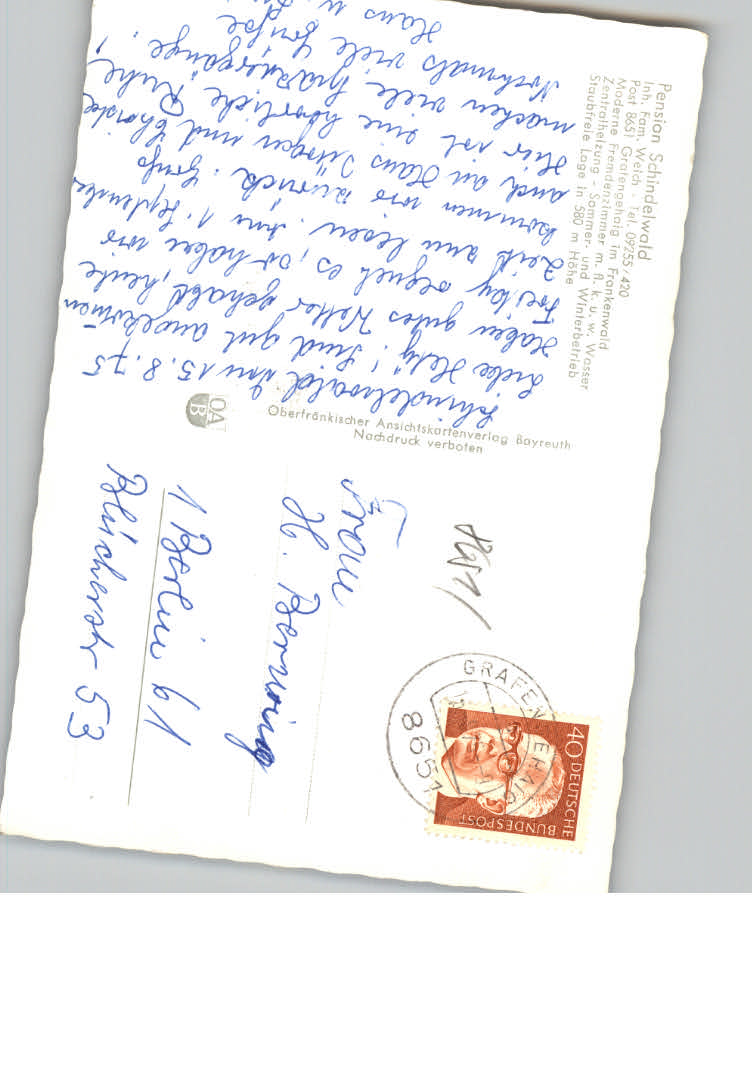 Pension Schindelwald
Inh. Fam. Welch - Tel. 09255/420
Post 8651 Grafengehaig im Frankenwald
Moderne Fremdenzimmer m. fl. k. u. w. Wasser
Zentralheizung - Sommer- und Winterbetrieb
Staubfreie Lage in 580 m Höhe
Schindelwald den 15. 8. 75
Liebe Hely! Sind gut angekommen
Haben gutes Wetter gehabt, heute
Freitag regnet es, so haben wir
Zeit zum lesen. Am 1. September
kommen wir zurück. Gruß
auch an Hans Jürgen und Christa
Hier ist eine herrliche Ruhe!
machen viele Spaziergänge.
Nochmals viele Grüße
Hans u.
Oberfränkischer Ansichtskartenverlag Bayreuth
Nachdruck verboten
OA
B
8651
GRAFENGEHAIG
8651
40 DEUTSCHE
BUNDESPOST
Frau
H. Berwing
1 Berlin 61
Blücherstr 53